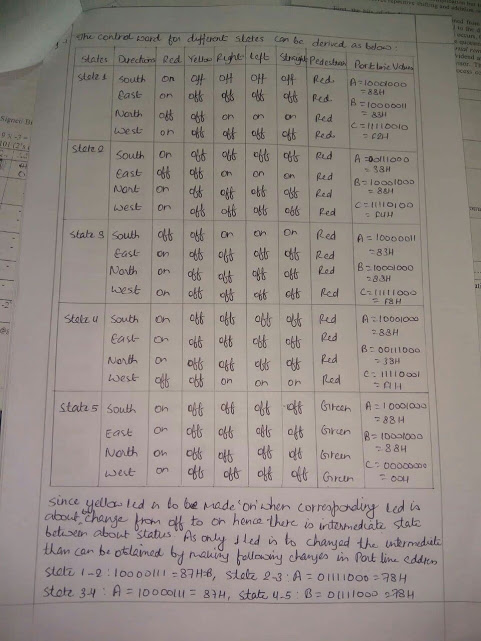 The control word for different states can be derived as below:
States Direction Red Yellow Right Left Straight Pedestrian Port Line Values
State 1 South on off off off off Red A=10001000
=88H
East on off off off off Red
North off off on on on Red B=10000011
=83H
West on off off off off Red C=11110010
=F2H
State 2 South on off off off off Red A=00111000
=38H
East off off on on on Red
Nort on off off off off Red B=10001000
=88H
West on off off off off Red C=11110100
=F4H
State 3 South off off on on on Red A=10000011
=83H
East on off off off off Red
North on off off off off Red B=10001000
=88H
West on off off off off Red C=11111000
=F8H
State 4 South on off off off off Red A=10001000
=88H
East on off off off off Red
North on off off off off Red B=00111000
=38H
West off off on on on Red C=11110001
=F1H
State 5 South on off off off off Green A=10001000
=88H
East on off off off off Green B=10001000
=88H
North on off off off off Green
West on off off off off Green C=00000000
=00H
Since yellow led is to be made 'on' when corresponding led is
about by change from off to on hence there is intermediate state
between about status. As only 1 led is to changed the intermediate
than can be obtained by making following changes in Port line address
State 1-2: 10000111=87H-B, State 2-3: A=01111000=78H
State 3-4: A=10000111=87H, State 4-5: B=01111000=78H